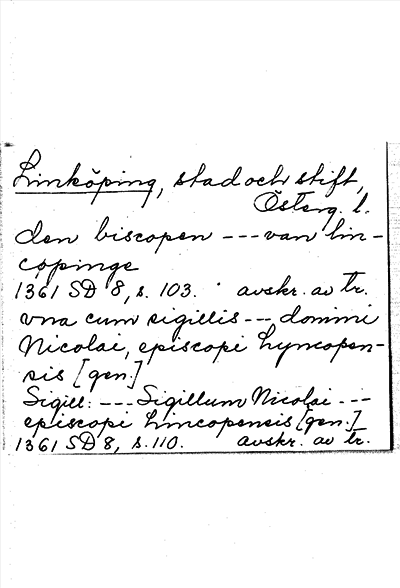 Linköping, stad och stift,
Österg. l.
den biscopen --- van lin-
copinge
1361 SD 8, s. 103. avskr. av tr.
vna cum sigillis --- domini
Nicolai, episcopi Lyncopen-
sis [gen.]
Sigill: --- Sigillum Nicolai ---
episcopi Lincopensis [gen.]
1361 SD 8, s. 110. avskr. av tr.